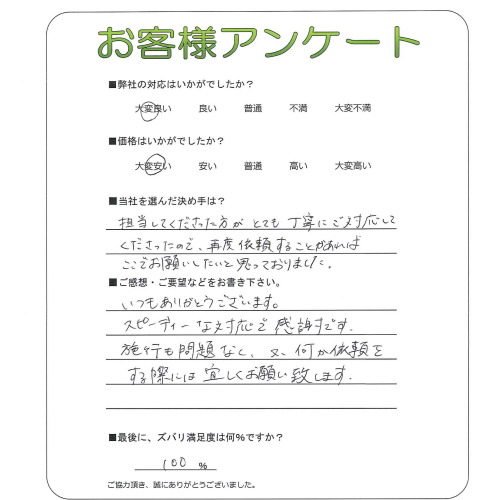 お客様アンケート
■弊社の対応はいかがでしたか？
大変良い 良い 普通 不満 大変不満
■価格はいかがでしたか？
大変安い 安い 普通 高い 大変高い
■当社を選んだ決め手は？
担当してくださった方が とても 丁寧に ご対応して
くださったので、再度依頼することがあれば
ここでお願いしたいと思っておりました。
■ご感想・ご要望などをお書き下さい。
いつもありがとうございます。
スピーディーな対応で 感謝です。
施行も問題なく、又、何か依頼を
する際には 宜しくお願い致します。
■最後に、ズバリ満足度は何%ですか？
100 %
ご協力頂き、誠にありがとうございました。